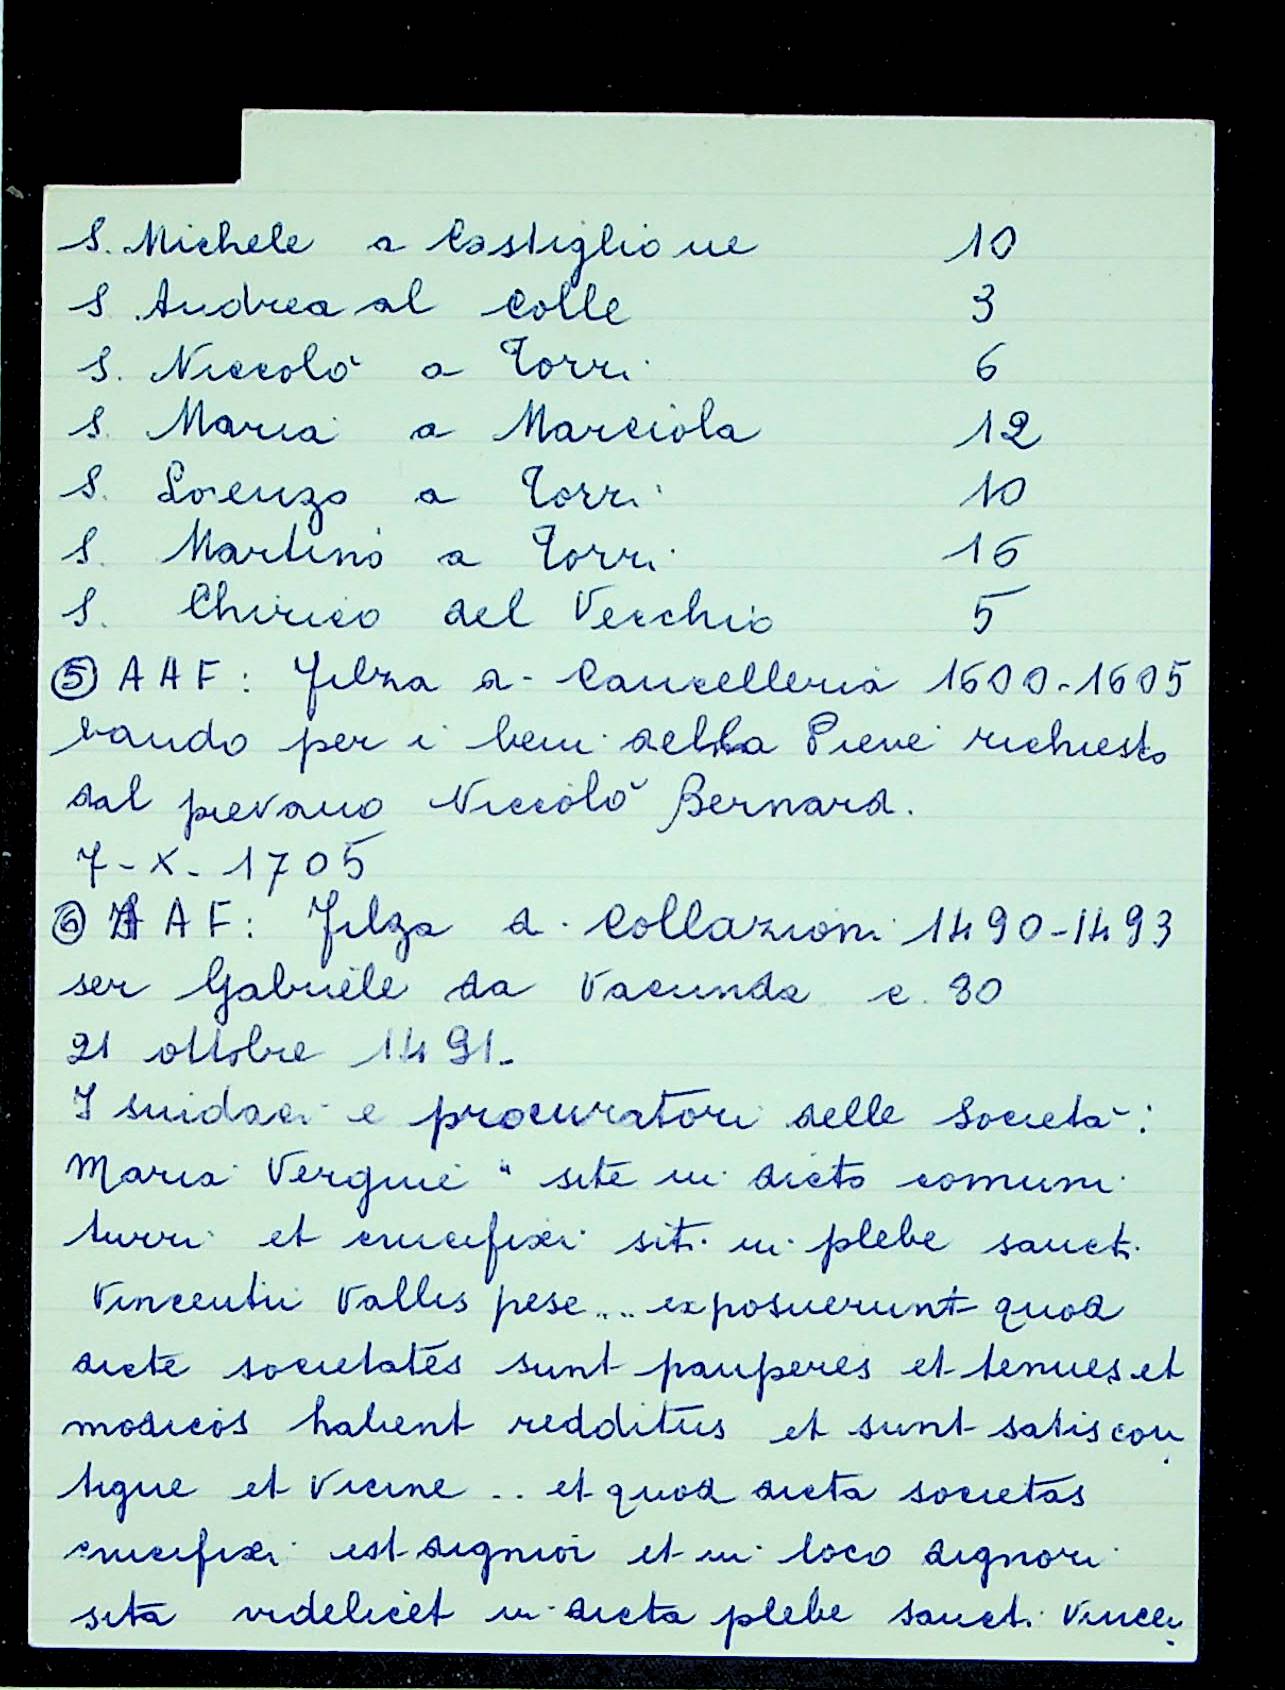 S. Michele a Castiglione 10
S. Andrea al Colle 3
S. Niccolò a Torri 6
S. Maria a Marciola 12
S. Lorenzo a Torri 10
S. Martino a Torri 16
S. Chirico del Vecchio 5
⑤ A A F: Filza di Cancelleria 1600-1605
bando per i beni della Pieve richiesto
dal pievano Niccolò Bernard.
7-X-1705
⑥ A A F: Filza di Collazioni 1490-1493
ser Gabriele da c. 30
21 ottobre 1491-
I sindaci e procuratori delle Società:
Maria Vergine " site in dicto comuni
turri et crucifixi siti in plebe sancti
Vincentii Vallis pese.... exposuerunt quod
dicte societates sunt pauperes et tenues et
modicos habent redditus et sunt satis con
tigue et vicine .. et quod dicta societas
crucifixi est dignior et in loco dignori
sita videlicet in dicta plebe sancti Vincen